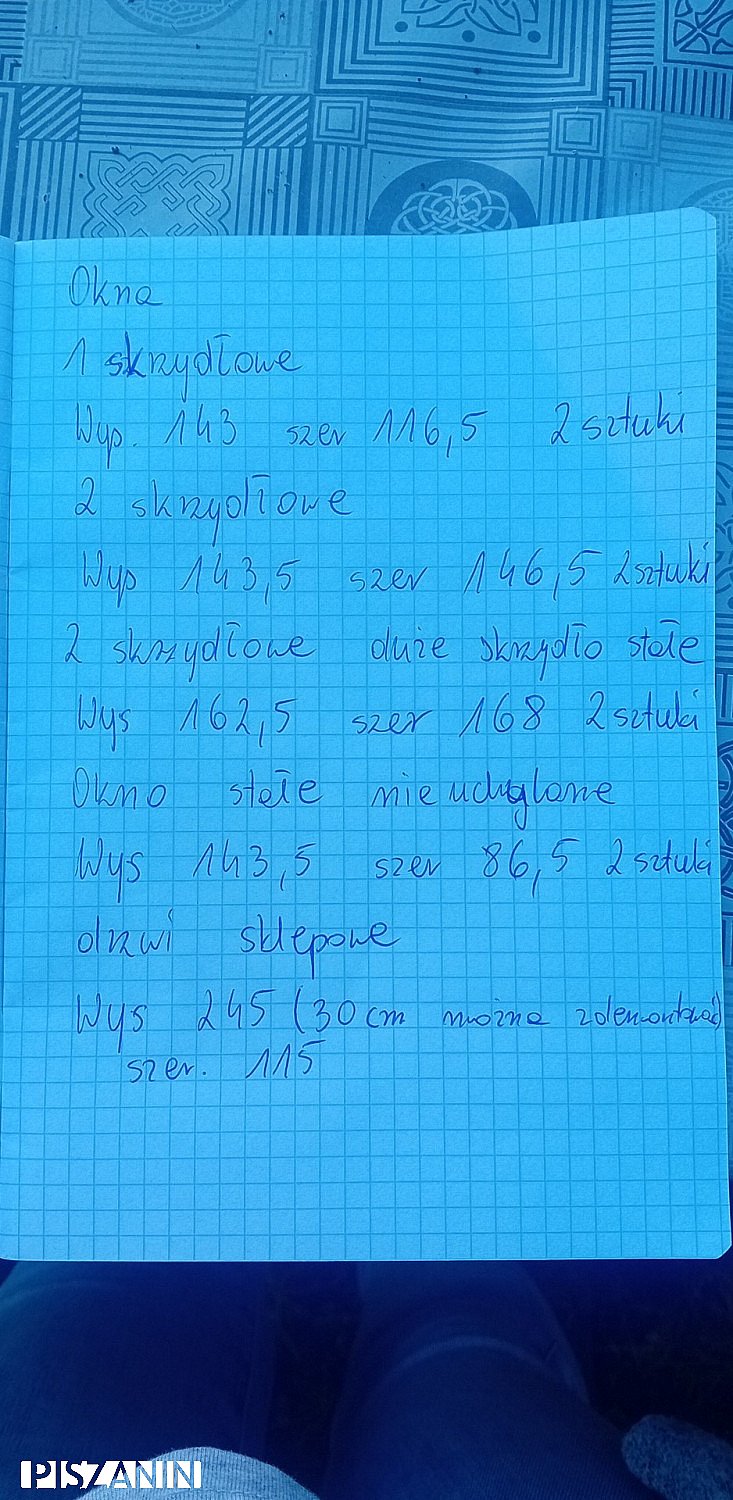 Okna
1 skrzydłowe
Wyp. 143 szer 116,5 2 sztuki
2 skrzydłowe
Wyp 143,5 szer 146,5 2 sztuki
2 skrzydłowe duże skrzydło stałe
Wys 162,5 szer 168 2 sztuki
Okno stałe nie uchylane
Wys 143,5 szer 86,5 2 sztuki
drzwi sklepowe
Wys 245 (30 cm można zdemontować)
szer. 115
PISZANIN